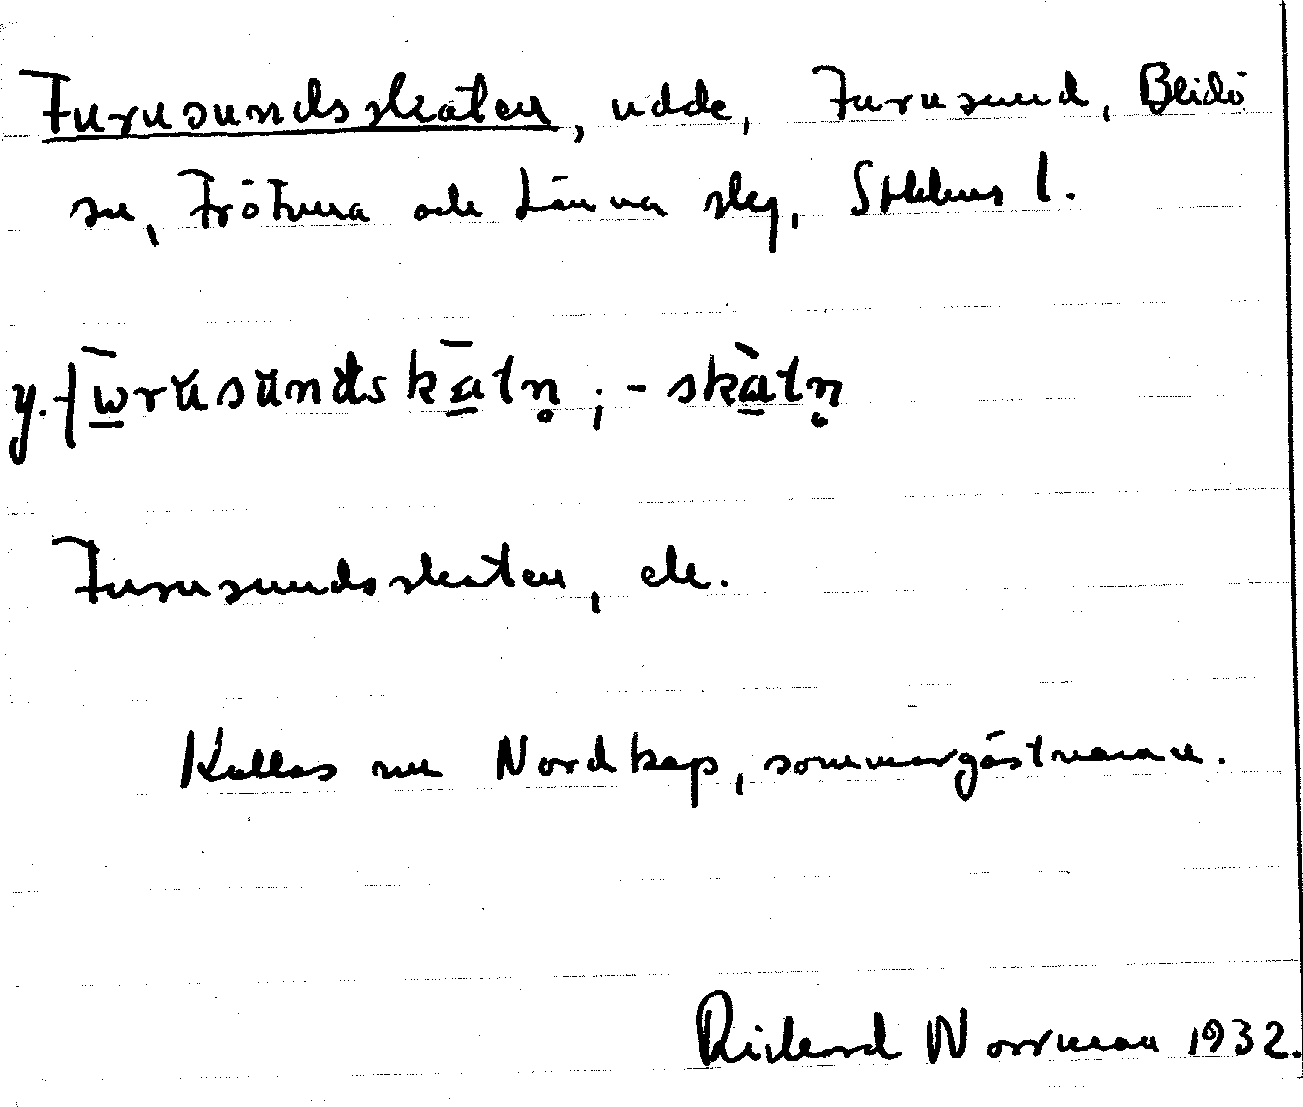 Furusundsskaten, udde, Furusund, Blidö
sn, Frötuna och Länna slg, Sthlms l.
y. fu̱̅rŭsŭndskā̱tn̥; -skà̱tn̥
Furusundsskaten, ek.
Kallas nu Nordkap, sommargästnamn.
Rickard Norrman 1932.